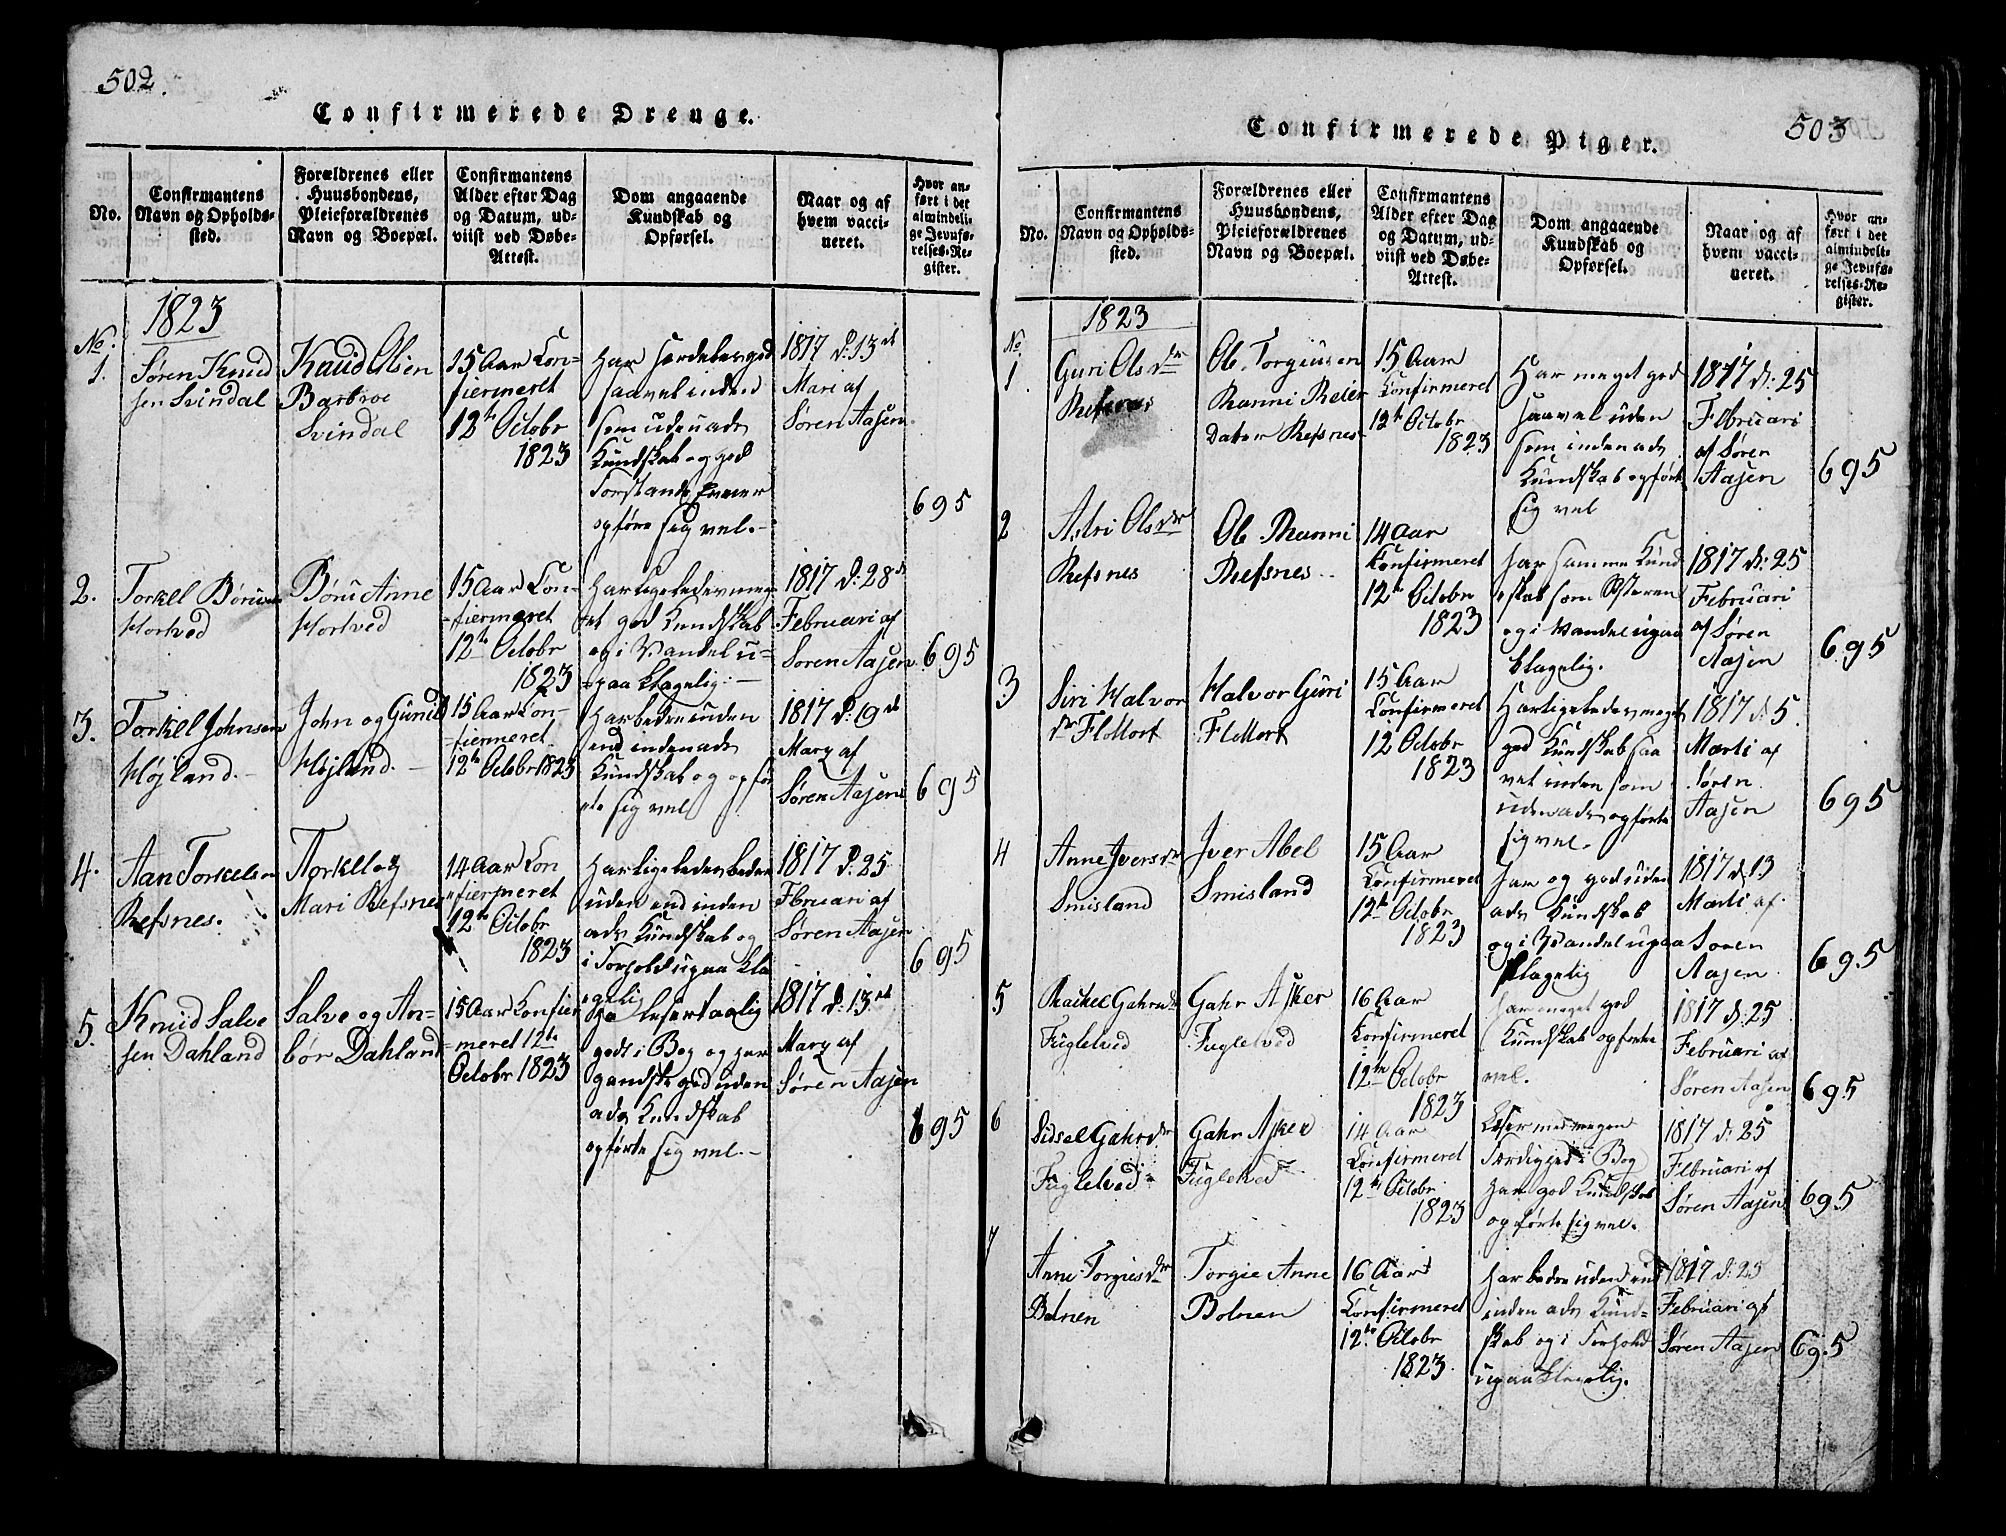 502.
Confirmerede Drenge.
No.
Confirmantens
Navn og Opholds-
sted.
Forældrenes eller
Huusbondens,
Pleieforældrenes
Navn og Boepæl.
Confirmantens
Alder efter Dag
og Datum, ud-
viist ved Døbe-
Attest.
Dom angaaende
Kundskab og
Opførsel.
Naar og af
hvem vacci-
neret.
Hvor an-
ført i det
almindeli-
ge Jevnfø-
relses-Re-
gister.
1823
No.
1.
Søren Knud
sen Svindal
Knud Olsen
Barbroe
Svindal
15 Aar Con-
fiermeret
12te Octobr
1823
Har særdeles god
saavel inden
som udenads
Kundskab og god
Forstands Evner
opføre sig vel.-
1817 d: 13d
Mari af
Søren Aasen.
695
2.
Torkel Børuvsen
Hortved
Børu Anne
Hortved
15 Aar Con-
-fiermeret
12te Octobr
1823
Har ligeledes meg
et god Kundskab
og i Vandel u-
paa klagelig.-
1817 d: 28d
Februari af
Søren Aasen
695
3.
Torkel Johnsen
Højland.-
John og Gunild
Højland.-
15 Aar Con-
-fiermeret
12te Octobr 1823
Har bedre uden
end indenads
Kundskab og opfør
te sig vel
1817 d: 19d
Marz af
Søren Aasen
695
4.
Aan Torkelsen
Refsnes.
Torkel og
Mari Refsnes
14 Aar Con
fiermeret
12te Octobr
1823
Har ligeledes bedre
uden end inden
ads Kundskab og
i Forhold upaa kla
gelig
1817 d: 25
Fbruari af
Søren Aasen
695
5.
Knud Salve
sen Dahland
Salve og An-
bör Dahland
15 Aar Confier
-meret 12te
Octobr 1823
læser taalig
godt i Bog og har
gandske god uden
ads Kundskab
opførte sig vel.-
1817 d: 13de
Marz af
Søren Aasen
695
503
Confirmerede Piger.
No.
Confirmantens
Navn og Opholds-
sted.
Forældrenes eller
Huusbondens,
Pleieforældrenes
Navn og Boepæl.
Confirmantens
Alder efter Dag
og Datum, ud-
viist ved Døbe-
Attest.
Dom angaaende
Kundskab og
Opførsel.
Naar og af
hvem vacci-
neret.
Hvor an-
ført i det
almindeli-
ge Jevnfø-
relses-Re-
gister.
1823
No
1
Guri Olsdr
Refsnes
Ole Torgiusen
Ranni Reier
Dater Refsnes
15 Aar
Confirmeret
12te Octobr
1823
Har meget god
saavel uden
som indenads
Kundskab opførte
sig vel
1817 d: 25
Februari
af Søren
Aasen
695
2
Astri Olsdr
Refsnes
Ole Ranni
Refsnes
14 Aar
Confirmeret
12te Octobr
1823
Har samme Kund
skab som Østeren
og i Vandel upaa
klagelig.
1817 d: 25
Februari
af Søren
Aasen
695
3
Siri Halvor
dr Flottorf
Halvor Guri
Flottorf
15 Aar
Confirmeret
12 Octobr
1823
Har ligeledes meget
god Kundskab saa
vel inden som
udenads opførte
sig vel.
1817 d: 5
Marti af
Søren
Aasen
695
4
Anne Iversdr
Smisland
Iver Abel
Smisland
15 Aar
Confirmeret
12te Octobr
1823
Har og god uden
ads Kundskab
og i Vandel upaa
klagelig
1817 d: 13
Marti af
Søren
Aasen
695
5
Rachel Gahrsdr
Fuglelved
Gahr Asker
Fuglelved
16 Aar
Confirmeret
12te Octobr
1823
Har meget god
Kundskab opførte
vel.
1817 d: 25
Februari af
Søren Aasen
695
6
Sidsel Gahrsdr
Fuglelved
Gahr Asker
Fuglelved
14 Aar
Confirmeret
12te Octobr
1823
Læser med megen
Færdighed i Bog
Har god Kundskab
opførte sig vel.
1817 d: 25
Februari af
Søren Aasen
695
7
Anne Torgiesdr
Bolnen
Torgie Anne
Bolnen
16 Aar
Confirmeret
12te Octobr
1823
Har bedre uden end
inden ads Kund-
skab og i Forhold
upaa klagelig.
1817 d: 25
Februari af
Søren Aasen
695